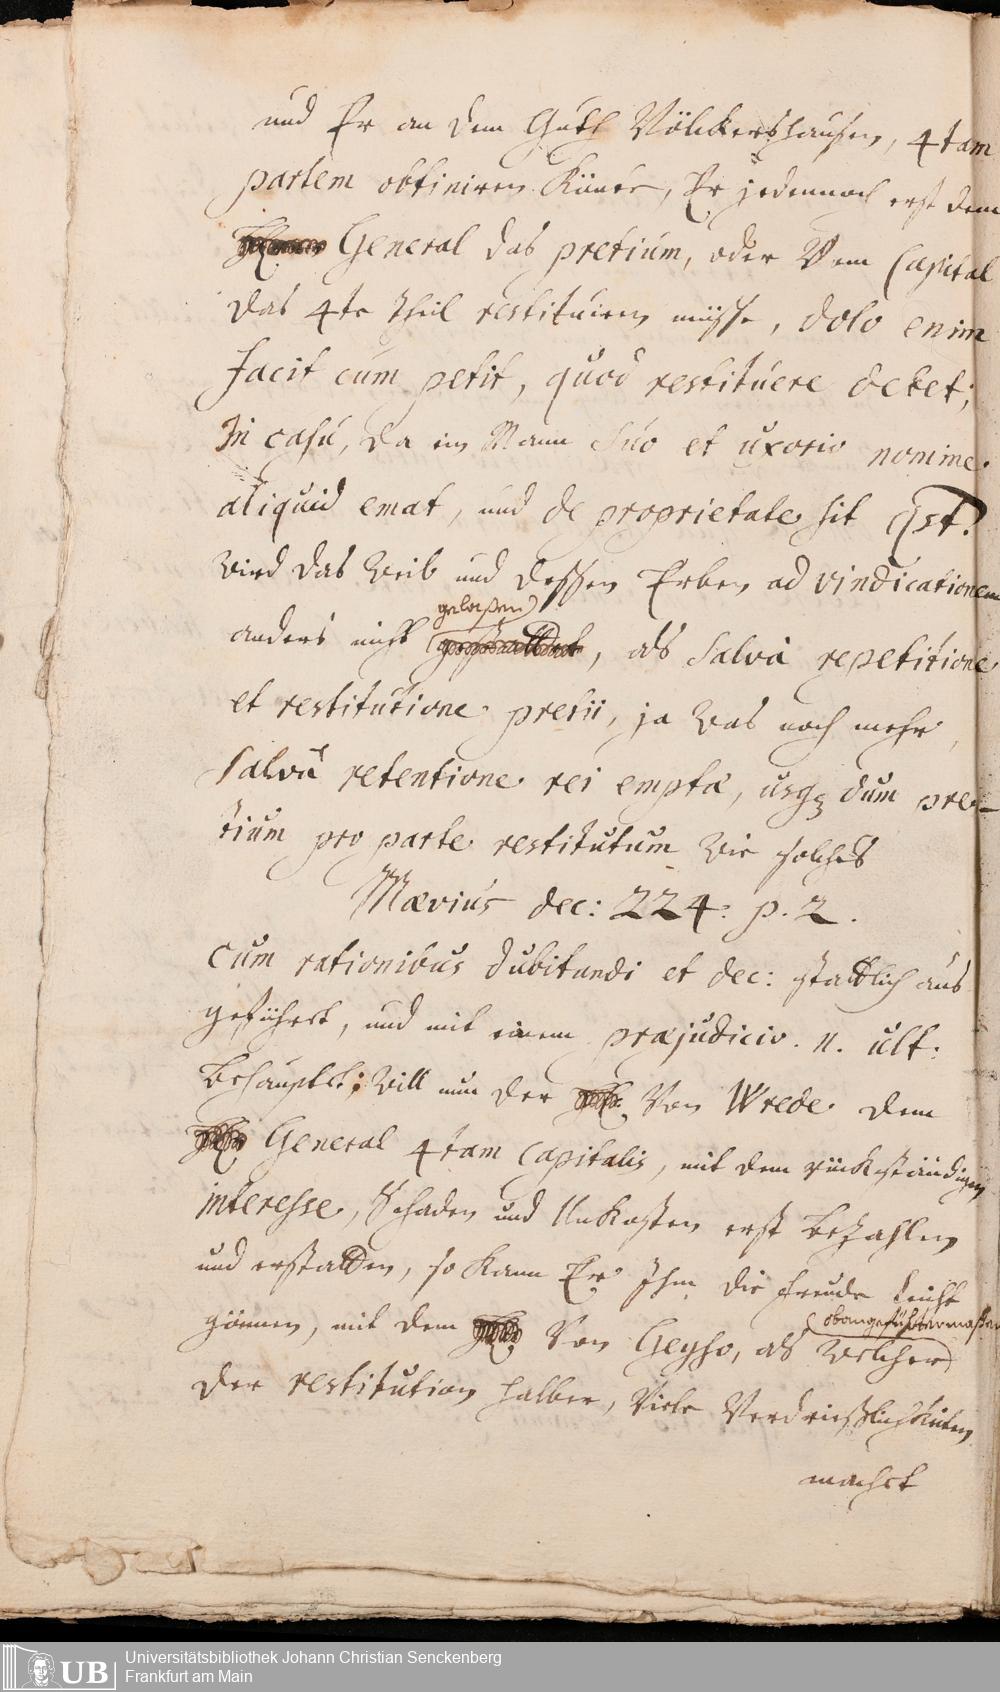 und Er an dem Guth Völckershausen, 4tam
partem obtiniren Könte, Er jedennoch erst dem
General das pretium, oder Vom Capital
das 4te theil restituiren müsse, dolo enim
facit cum petit, quod restituere debet;
In casu, da ein Mann suo et uxorio nomine
aliquid emat, und de proprietate sit Qst?
wird das Weib und dessen Erben ad vindicationem
anders nicht gelaßen, als salvâ repetitione
et restitutione pretii, ja was noch mehr,
salvâ retentione rei emptæ, usq3 dum pre-
tium pro parte restitutum wie solches
Mævius dec: 224. p. 2.
cum rationibus dubitandi et dec: stattlich aus
geführet, und mit einem præjudicio. n. ult:
behauptet; Will nun der Von Wrede dem
General 4tam Capitalis, mit dem rückständigen
interesse, Schaden und Unkosten erst bezahlen
und erstatten, so kann Er Ihm die freude leicht
gönnen, mit dem Von Geyso, als welcher
obangeführtermaßen
der restitution halber, Viele Verdrießlichkeiten
machet
Universitätsbibliothek Johann Christian Senckenberg
Frankfurt am Main
UB